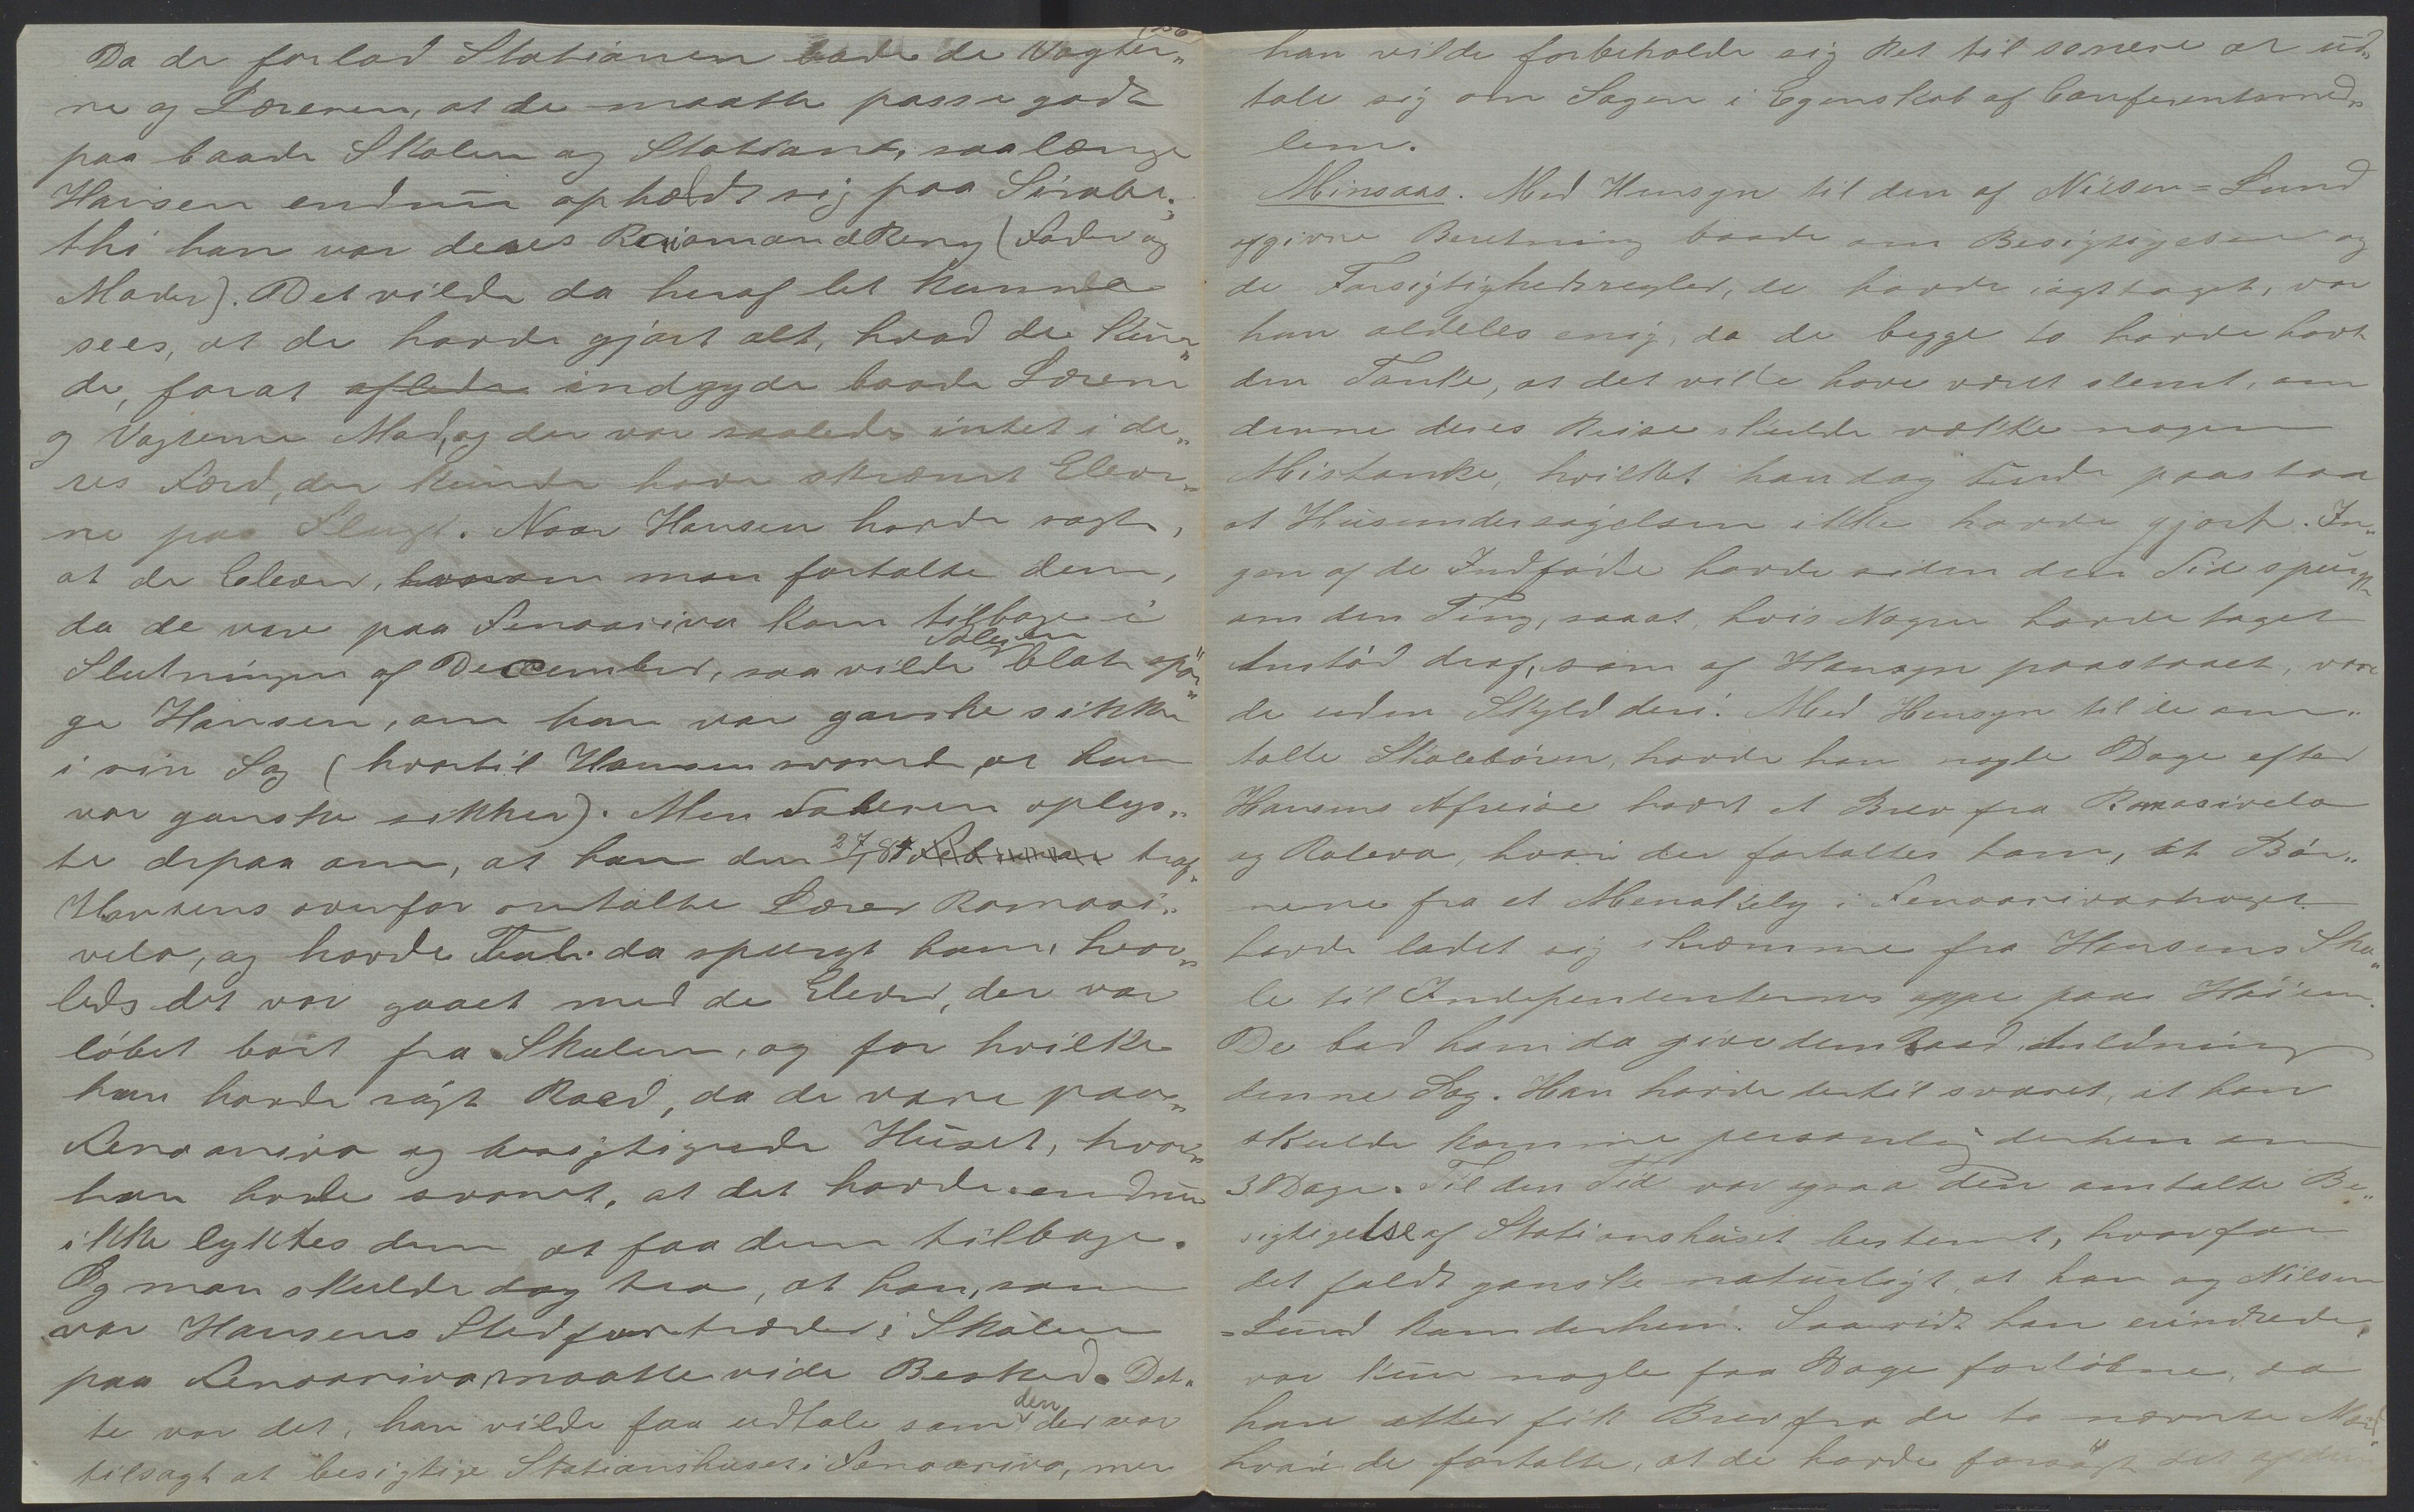 Da de forlod Stationen bade de Vogter„
ne og Læreren, at de maatte passe godt
paa baade Skolen og Stationen, saalænge
Hansen endnu opholdt sig paa Sirabe.,
thi han var deres Raiamandreny (Fader og
Moder). Det vilde da heraf let kunne
sees, at de havde gjort alt, hvad de kun„
de, forat aflede indgyde baade Læreren
og Vogterne Mod, og der var saaledes intet i de„
res Færd, der kunde have skræmt Elever„
ne paa Flugt. Naar Hansen havde sagt,
at de Elever, hvorom man fortalte dem,
da de vare paa Fenoarivo kom tilbage i
Slutningen af December, saa vilde Taleren blot spør„
ge Hansen, om han var ganske sikker
i sin Sag (hvortil Hansen svarede, at han
var ganske sikker). Men Taleren oplys„
te derpaa om, at han den 27/1 84 Februar traf
Hansens ovenfor omtalte Lærer Ramasi„
velo, og havde Tal. da spurgt ham, hvor„
leds det var gaaet med de Elever, der var
løbet bort fra Skolen, og for hvilke
han havde søgt Raad, da de vare paa„
Fenoarivo og besigtigede Huset, hvor„
han havde svaret, at det havde endnu
ikke lyktes dem at faa dem tilbage.
Og man skulde dog tro, at han, som
var Hansens Stedfortræder i Skolen
paa Fenoarivo, maatte vide Besked. Det„
te var det, han vilde faa udtale som den der var
tilsagt at besigtige Stationshuset i Fenoarivo, men
han vilde forbeholde sig Ret til senere at ud„
tale sig om Sagen i Egenskab af Conferentsmed„
lem.
Minsaas. Med Hensyn til den af Nilsen=Lund
afgivne Beretning baade om Besigtigelsen og
de Forsigtighedsregler, de havde iagttaget, var
han aldeles enig, da de begge to havde havt
den Tanke, at det ville have været slemt, om
denne deres Reise skulde vække nogen
Mistanke, hvilket han dog turde paastaa
at Husundersøgelsen ikke havde gjort. In„
gen af de Indfødte havde siden den Tid spurgt
om den Ting, saaat, hvis Nogen havde taget
Anstød deraf, som af Hansen paastaaet, vare
de uden Skyld deri. Med Hensyn til de om„
talte Skolebørn, havde han nogle Dage efter
Hansens Afreise havt et Brev fra Ramasivelo
og Ralevo, hvori der fortaltes ham, at Bør„
nene fra et Menakely i Fenoarivostrøget
havde ladet sig skræmme fra Hansens Sko„
le til Independenternes oppe paa Høien.
De bad ham da give dem Raad i Anledning
denne Sag. Han havde dertil svaret, at han
skulde komme personlig derhen om
3 Dage. Til den Tid var ogsaa den omtalte Be„
sigtigelse af Stationshuset bestemt, hvorfor
det faldt ganske naturligt, at han og Nilsen
=Lund kom derhen. Saavidt han erindrede,
var kun nogle faa Dage forløbne, da
han atter fik Brev fra de to nævnte Mænd
hvori de fortalte, at de havde forsøgt det af dem